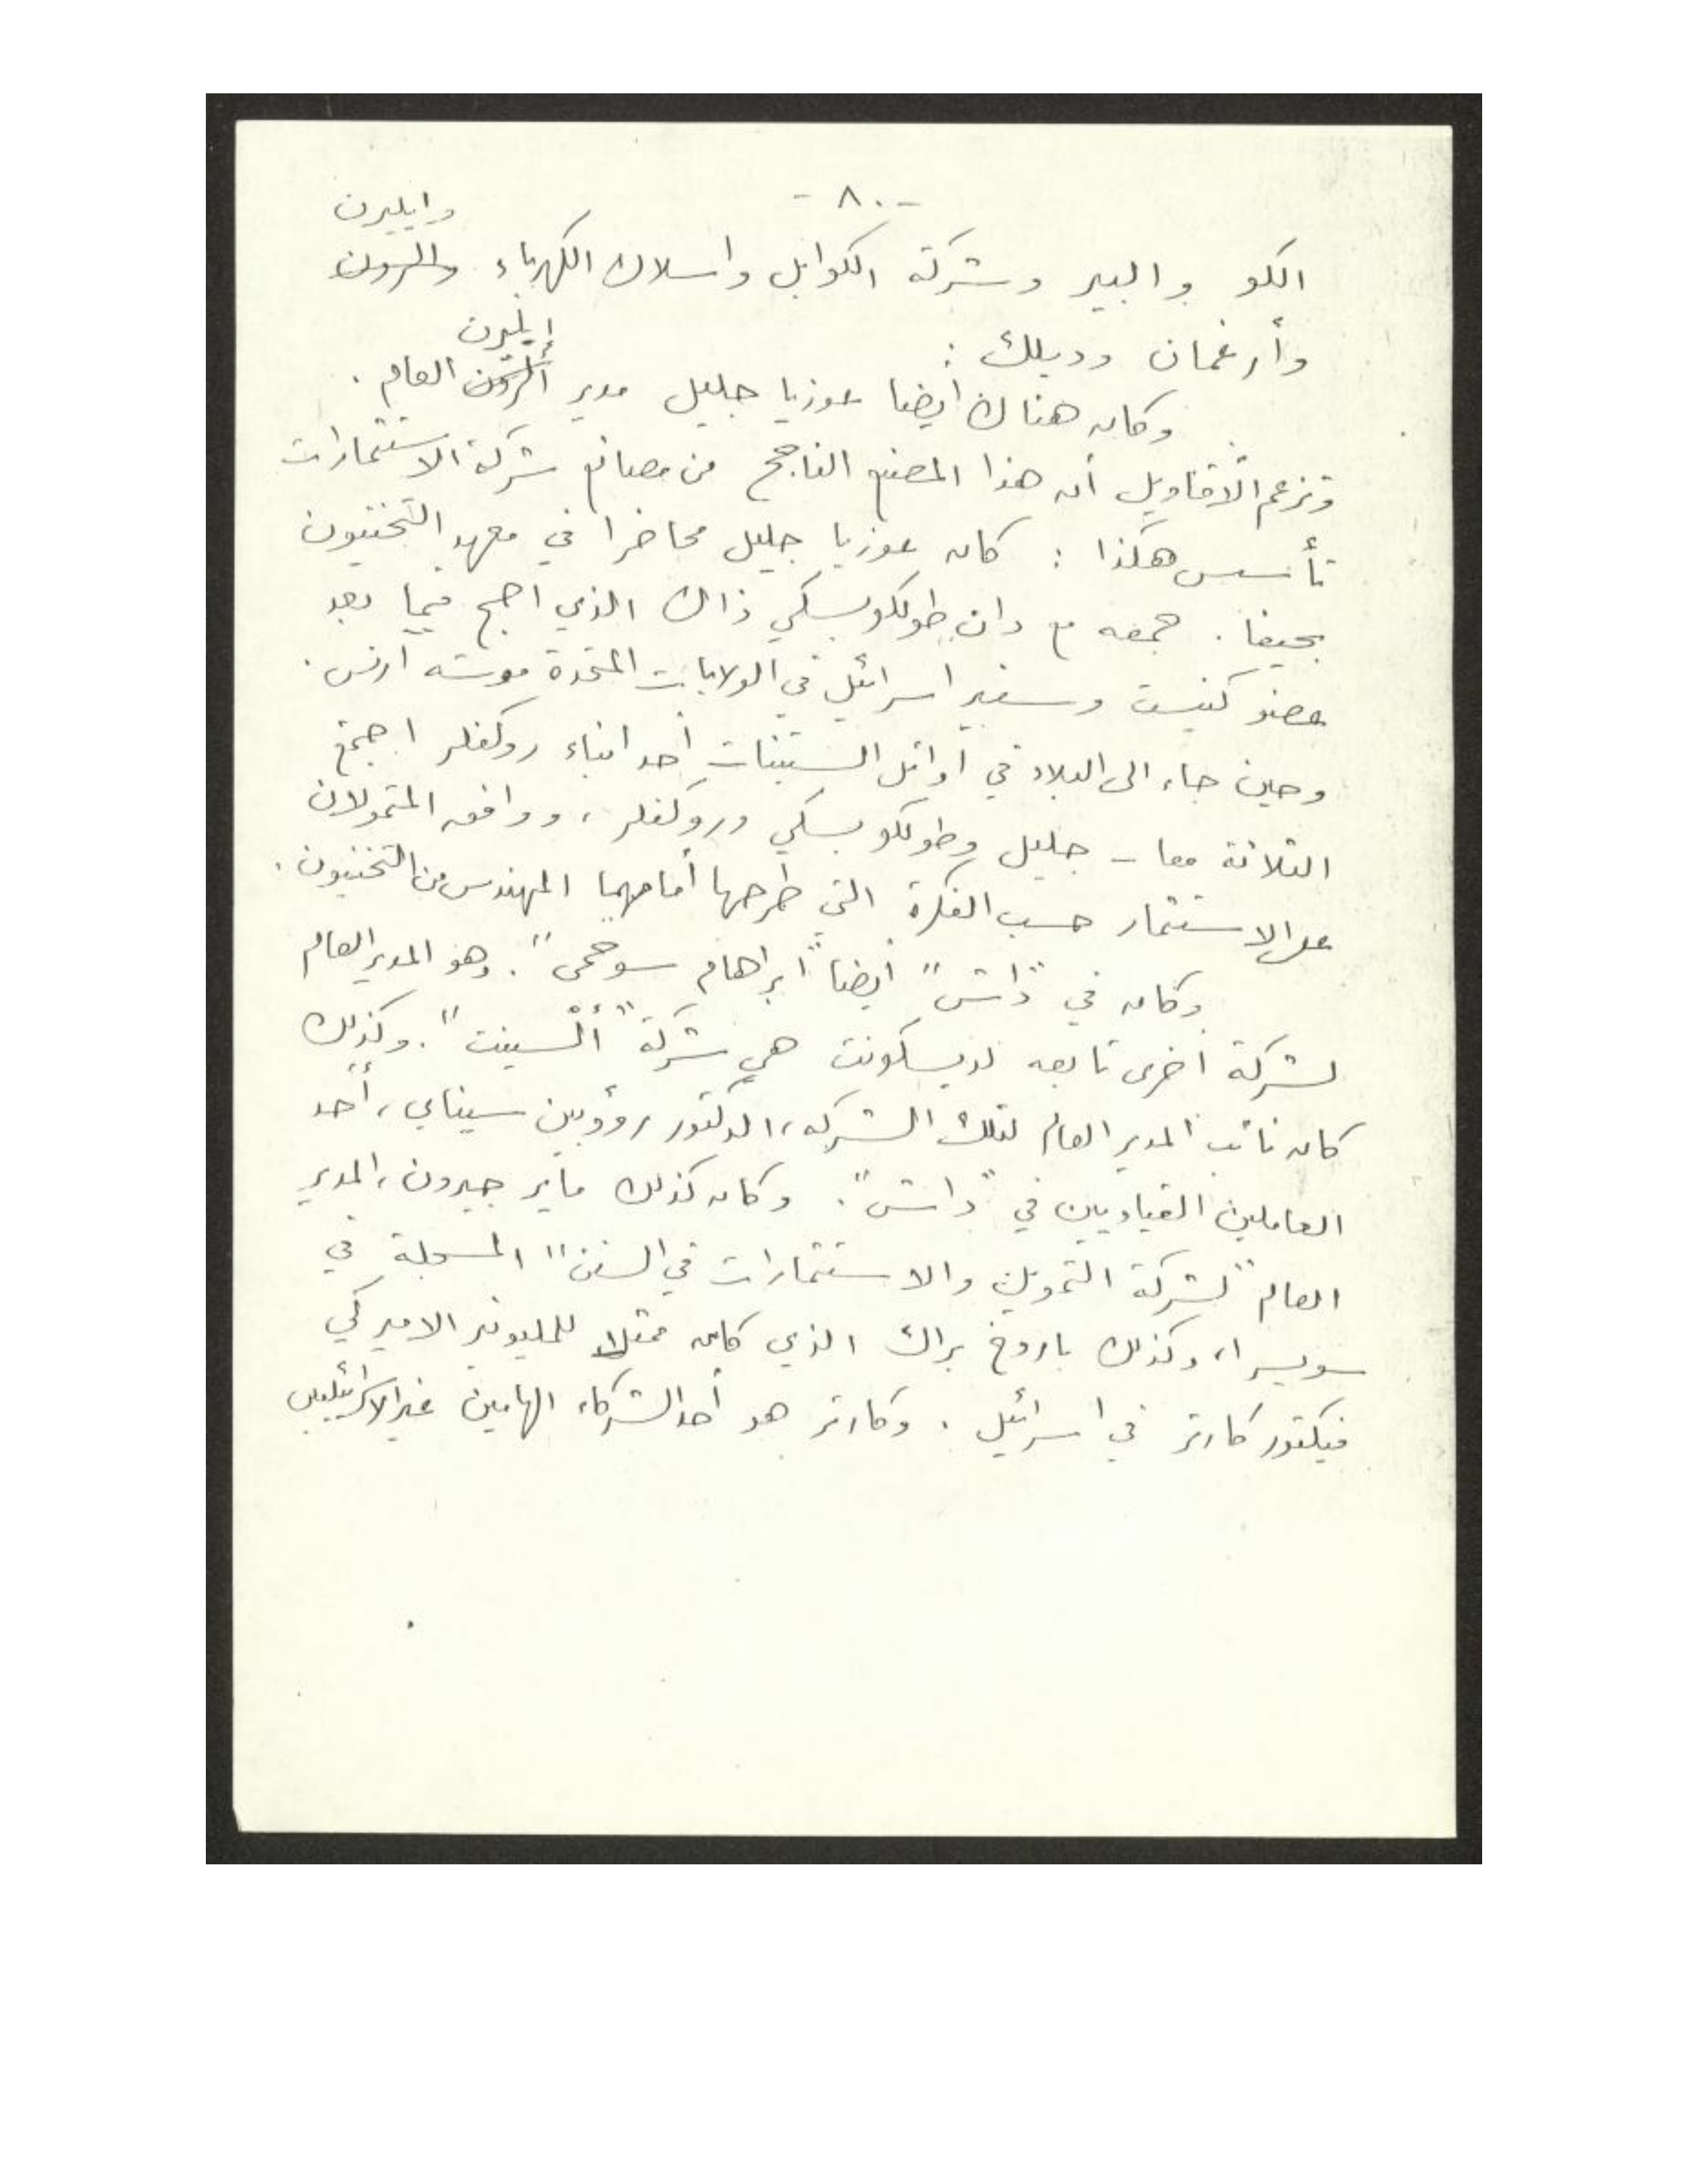 - ٨٠ -
وايليرن
الكو والبير وشركة الكوابل واسلاك الكهرباء والرون
وأرغمان وديلك :
إيلرن
وكان هناك أيضا عوزيا جليل مدير العام .
وتزعم الأقاويل أن هذا المصنع الناجح من مصانع شركة الاستثمارات
تأسس هكذا : كان عوزيا جليل محاضرا في معهد التخنيون
بحيفا . جمعه مع دان طولكوبسكي ذاك الذي اصبح فيما بعد
عضو كنيست وسفير اسرائيل في الولايات المتحدة موشه ارنس .
وحين جاء الى البلاد في أوائل الستينات أحد ابناء روكفلر اجتمع
الثلاثة معا - جليل وطولكوبسكي وروكفلر ، ووافق المتمولان
على الاستثمار حسب الفكرة التي طرحها أمامهما المهندس من التخنيون .
وكان في "داش" أيضا "ابراهام سوحمي" . وهو المدير العام
لشركة اخرى تابعه لديسكونت هي شركة "ألْسينت" . وكذلك
كان نائب المدير العام لتلك الشركه ، الدكتور رؤوبين سيناي ، أحد
العاملين القياديين في "داش" . وكان كذلك مايير جيرون ، المدير
العام "لشركة التمويل والاستثمارات في السفن" المسجلة في
سويسرا ، وكذلك باروخ براك الذي كان ممثلا للمليونير الاميركي
فيكتور كارتر في اسرائيل . وكارتر هو أحد الشركاء الهامين غير الاسرائيليين